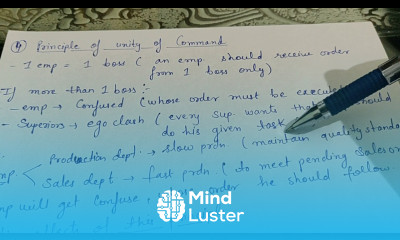 ④ Principle of Unity of Command
- 1 emp = 1 boss ( an emp should receive order
from 1 boss only)
If more than 1 boss :-
- emp → Confused ( whose order must be execute
- Superiors → ego clash ( every sup. wants that should
do his given task
Production dept → slow prdn ( maintain quality standa
Sales dept → fast prdn ( to meet pending Sales or
emp will get Confuse, order he should follow
Mind
Luster